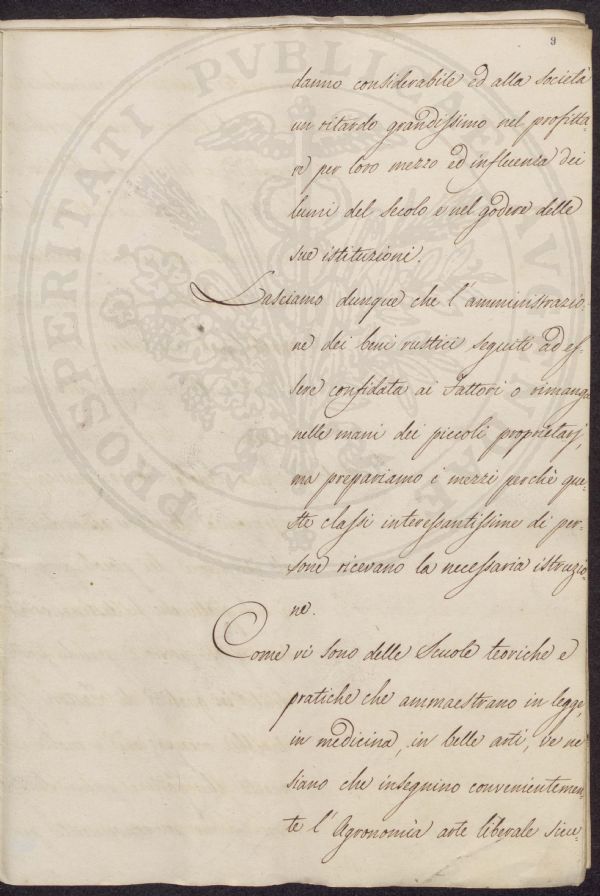 9
danno considerabile ed alla Società
un ritardo grandissimo nel profitta-
re per loro mezzo ed influenza dei
lumi del Secolo e nel godere delle
sue istituzioni.
Lasciamo dunque che l'amministrazio-
ne dei beni rustici seguiti ad es-
sere confidata ai Fattori o rimanga
nelle mani dei piccoli proprietarj,
ma prepariamo i mezzi perchè que-
ste classi interessantissime di per-
sone ricevano la necessaria istruzio-
ne.
Come vi sono delle Scuole teoriche e
pratiche che ammaestrano in legge,
in medicina, in belle arti, ve ne
siano che insegnino convenientemen-
te l'Agronomia arte liberale sicu-
PROSPERITATI PUBLICAE AUGENDAE